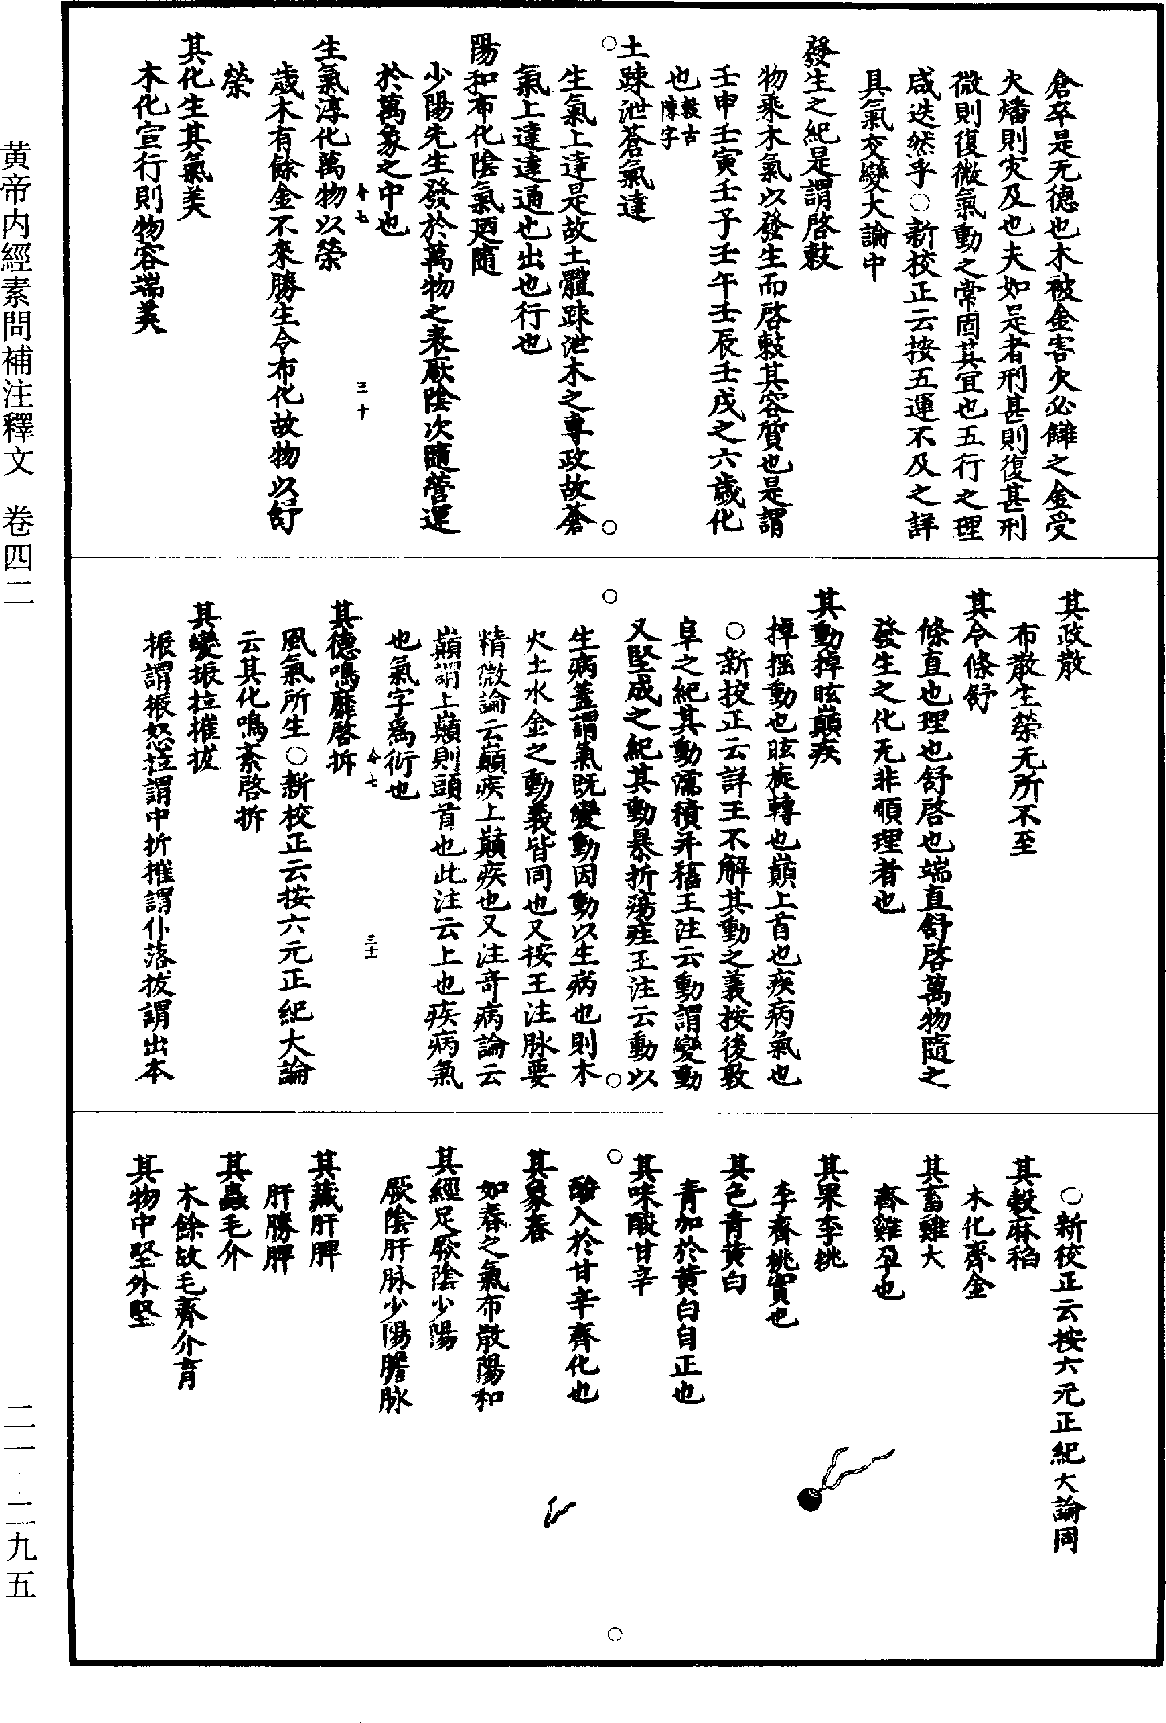 倉卒是无德也木被金害火必讎之金受
火燔則災及也夫如是者刑甚則復甚刑
微則復微氣動之常固其宜也五行之理
咸迭然乎○新校正云按五運不及之詳
具氣交變大論中
發生之紀是謂啓敕
物乘木氣以發生而啓敕其容質也是謂
壬申壬寅壬子壬午壬辰壬戌之六歲化
也敕古陳字
土踈泄蒼氣達
生氣上達是故土體踈泄木之專政故蒼
氣上達達通也出也行也
陽和布化陰氣廼隨
少陽先生發於萬物之表厥陰次隨營運
於萬象之中也
生氣淳化萬物以榮
歲木有餘金不來勝生令布化故物以舒
榮
其化生其氣美
木化宣行則物容端美
其政散
布散生榮无所不至
其令條舒
條直也理也舒啓也端直舒啓萬物隨之
發生之化无非順理者也
其動掉眩巔疾
掉摇動也眩旋轉也巔上首也疾病氣也
○新校正云詳王不解其動之義按後敦
阜之紀其動濡積并稸王注云動謂變動
又堅成之紀其動暴折瘍疰王注云動以
生病蓋謂氣既變動因動以生病也則木
火土水金之動義皆同也又按王注脉要
精微論云巔疾上巔疾也又注奇病論云
巔謂上巔則頭首也此注云上也疾病氣
也氣字爲衍也
其德鳴靡啓拆
風氣所生○新校正云按六元正紀大論
云其化鳴紊啓拆
其變振拉摧拔
振謂振怒拉謂中折摧謂仆落拔謂出本
○新校正云按六元正紀大論同
其穀麻稻
木化齊金
其畜雞犬
齊雞孕也
其果李桃
李齊桃實也
其色青黃白
青加於黃白自正也
其味酸甘辛
酸入於甘辛齊化也
其象春
如春之氣布散陽和
其經足厥陰少陽
厥陰肝脉少陽膽脉
其藏肝脾
肝勝脾
其蟲毛介
木餘故毛齊介育
其物中堅外堅
黄帝内經素問補注釋文 卷四二
二一·二九五